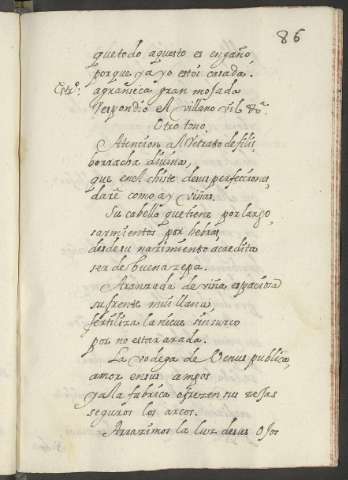 86
que todo aquesto es engaño
porque ya yo estoi casada.
Estro. agranieca gran mosada
respondio el villano vil &c.
Otro tono,
Atencion al retrato de filis
borracha diuina,
que en el chiste de sus perfecciones
daré como ay viñas.
Su cabello que tiene por largo
sarmientos por hebras
desde su nacimiento acredita
ser de buena zepa.
Aranzada de viña espaciosa
su frente mui llana,
fertiliza la nieue sin surco
por no estar arada.
La vodega de Venus publica,
amor en sus campos
y a la fabrica ofrezen sus zejas
seguros los arcos.
Arrazimos la luz de sus ojos